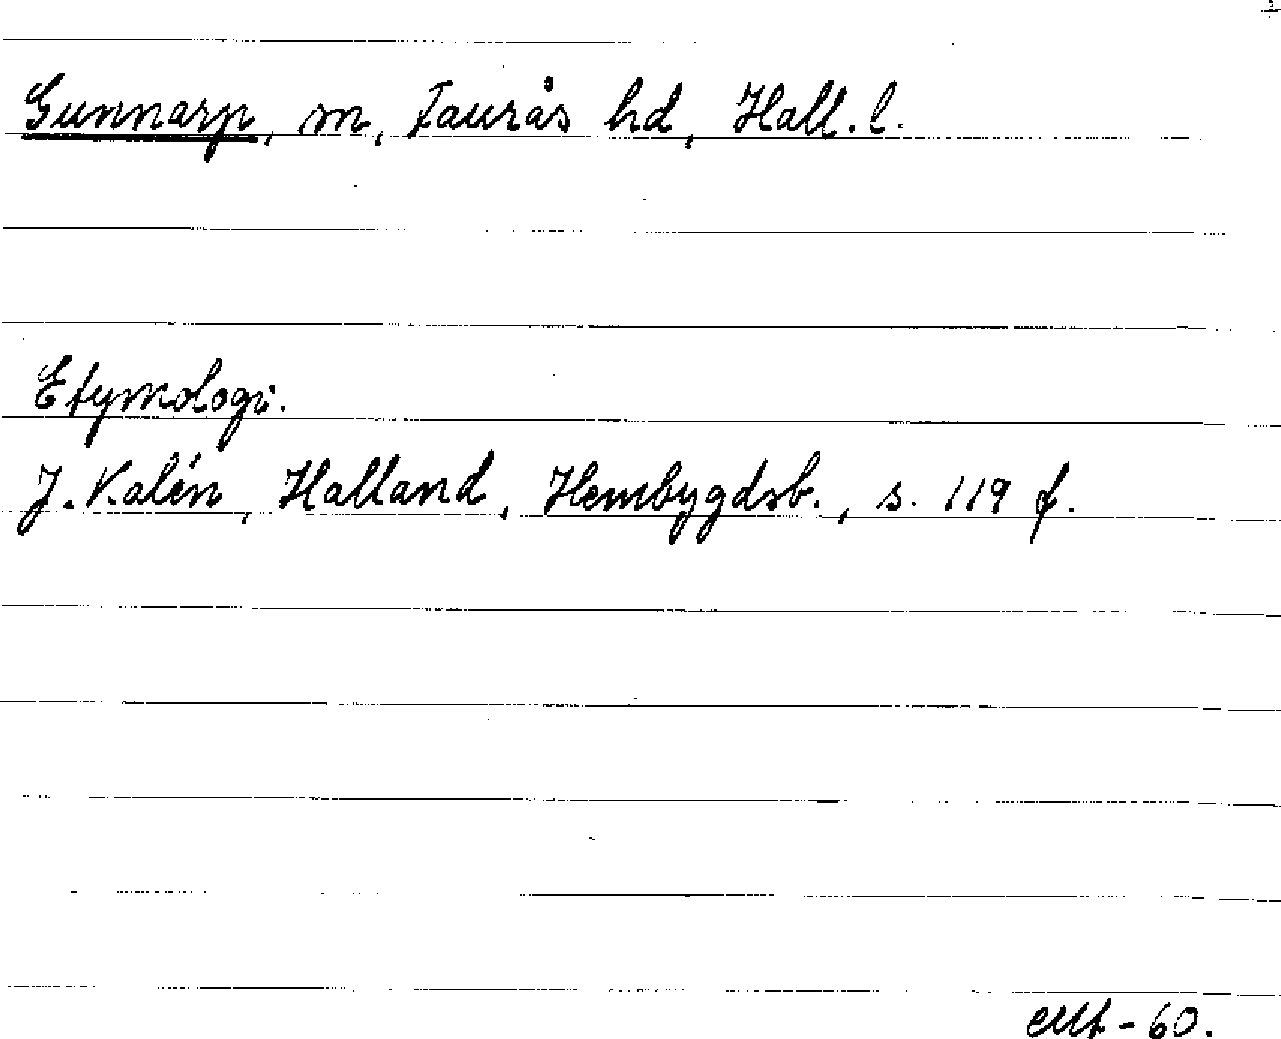 Gunnarp, sn, Faurås hd, Hall. l.
Etymologi.
J. Kalén, Halland, Hembygdsb., s. 119 f.
-60.